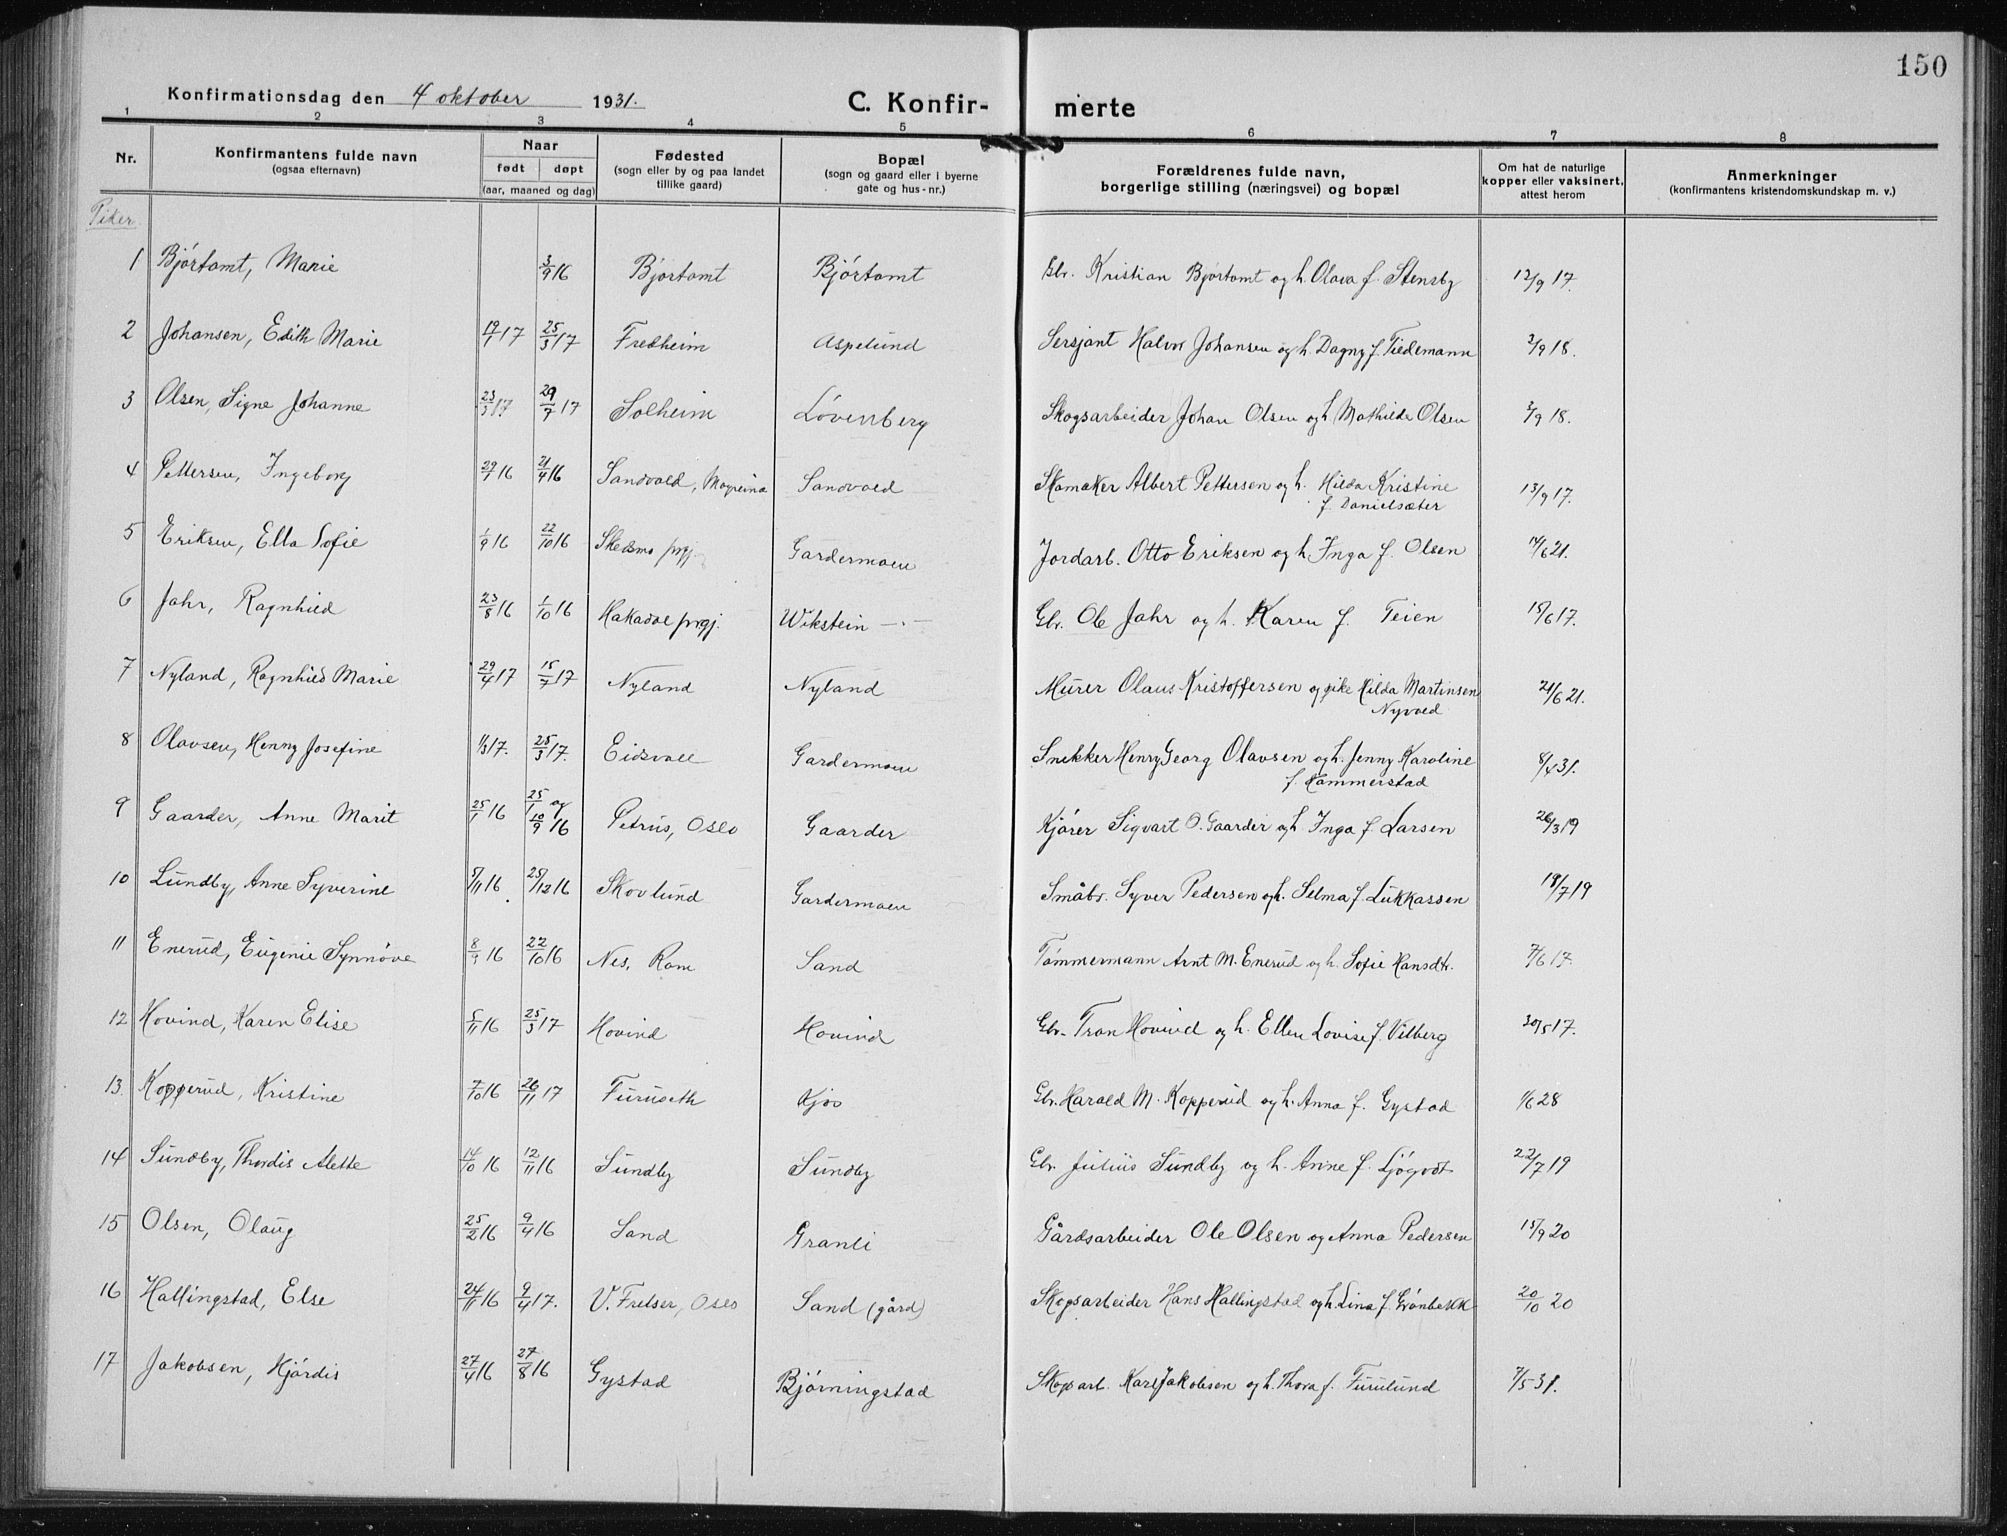 150
Konfirmationsdag den 4 oktober 1931.
C. Konfir- merte
1 2 3 4 5 6 7 8
Nr.
Konfirmantens fulde navn
(ogsaa efternavn)
Naar
født døpt
(aar, maaned og dag)
Fødested
(sogn eller by og paa landet
tillike gaard)
Bopæl
(sogn og gaard eller i byerne
gate og hus-nr.)
Forældrenes fulde navn,
borgerlige stilling (næringsvei) og bopæl
Om hat de naturlige
kopper eller vaksinert,
attest herom
Anmerkninger
(konfirmantens kristendomskundskap m. v.)
Piker.
1 Bjørtomt, Marie 3/9 16 Bjørtomt Bjørtomt Gbr. Kristian Bjørtomt og h. Olava f. Stensby 12/9 17.
2 Johansen, Edith Marie 19/1 17 25/3 17 Fredheim Aspelund Sersjant Halvor Johansen og h. Dagny f. Tiedemann 2/9 18.
3 Olsen, Signe Johanne 23/3 17 29/7 17 Solheim Løvenberg Skogsarbeider Johan Olsen og h. Mathilde Olsen 2/9 18.
4 Pettersen, Ingeborg 16 21/4 16 Sandvold, Mogreina Sandvold Skomaker Albert Pettersen og h. Hilda Kristine
f. Danielsæter 13/9 17.
5 Eriksen, Ella Sofie 1/9 16 22/10 16 Skedsmo prgj. Gardermoen Jordarb. Otto Eriksen og h. Inga f. Olsen 14/6 21.
6 Jahr, Ragnhild 23/8 16 1/10 16 Hakadal prgj. Wikstein - " - Gbr. Ole Jahr og h. Karen f. Teien 15/6 17.
7 Nyland, Ragnhild Marie 29/4 17 15/7 17 Nyland Nyland Murer Olaus Kristoffersen og pike Hilda Martinsen
Nyvold 21/6 21.
8 Olavsen, Henny Josefine 1/3 17. 25/3 17. Eidsvoll Gardermoen Snekker Henry Georg Olavsen og h. Jenny Karoline
f. Hammerstad 8/4 31.
9 Gaarder, Anne Marit 25/1 16 25/1 og
10/9 16 Petrus, Oslo Gaarder Kjører Sigvart O. Gaarder og h. Inga f. Larsen 26/3 19
10 Lundby, Anne Syverine 5/11 16 25/12 16 Skovlund Gardermoen Småbr. Syver Pedersen og h. Selma f. Lukkassen 18/7 19
11 Enerud, Eugenie Synnøve 8/9 16 22/10 16 Nes, Rom Sand Tømmermann Arnt M. Enerud og h. Sofie Hansdtr. 7/6 17.
12 Hovind, Karen Elise 5/11 16 25/3 17 Hovind Hovind Gbr. Tron Hovind og h. Ellen Lovise f. Vilberg 30/5 17.
13. Kopperud, Kristine 7/10 16 26/11 17 Furuseth Kjos Gbr. Harald M. Kopperud og h. Anna f. Gystad 1/6 28
14 Sundby, Thordis Alette 14/10 16 12/11 16 Sundby Sundby Gbr. Julius Sundby og h. Anne f. Ljøgodt 22/7 19
15 Olsen, Olaug 25/2 16 9/4 16 Sand Granli Gårdsarbeider Ole Olsen og Anna Pedersen 15/9 20
16 Hallingstad, Else 24/11 16 9/4 17. V. Frelser, Oslo Sand (gård) Skogsarbeider Hans Hallingstad og h. Lina f. Grønbekk 20/10 20
17 Jakobsen, Hjørdis 27/4 16 27/8 16 Gystad Bjørningstad Skogsarb. Karl Jakobsen og h. Thora f. Furulund 7/5 31.